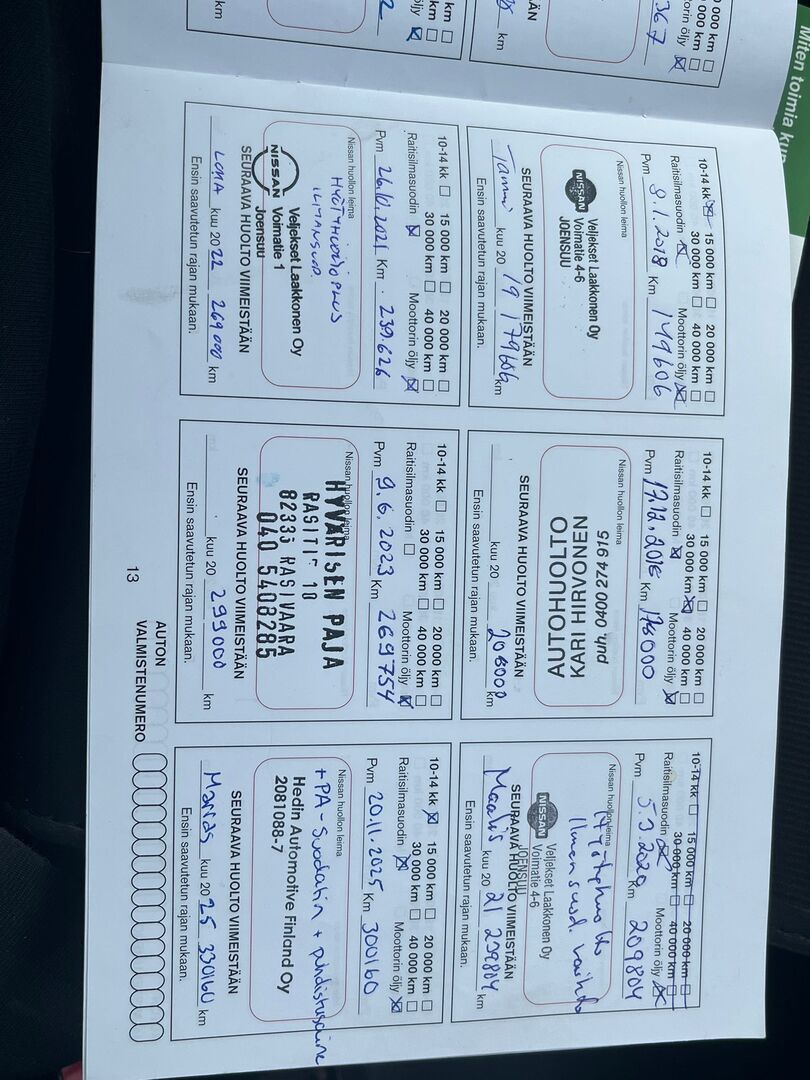 Miten toimia kun
0 000 km
000 km
torin öljy
367
km
km
öljy
km
km
10-14 kk 15 000 km 20 000 km
30 000 km 40 000 km
Raitisilmasuodin Moottorin öljy
Pvm 9.1.2018 Km 149606
Nissan huollon leima
NISSAN
Veljekset Laakkonen Oy
Voimatie 4-6
JOENSUU
SEURAAVA HUOLTO VIIMEISTÄÄN
Tammi kuu 20 19 179606 km
Ensin saavutetun rajan mukaan.
10-14 kk 15 000 km 20 000 km
30 000 km 40 000 km
Raitisilmasuodin Moottorin öljy
Pvm Km
Nissan huollon leima
puh 0400 274 915
KARI HIRVONEN
AUTOHUOLTO
SEURAAVA HUOLTO VIIMEISTÄÄN
kuu 20 km
Ensin saavutetun rajan mukaan.
10-14 kk 15 000 km 20 000 km
30 000 km 40 000 km
Raitisilmasuodin Moottorin öljy
Pvm 5.3.2020 Km 209804
Nissan huollon leima
Ilmansuod. vaihto
NISSAN
Veljekset Laakkonen Oy
Voimatie 4-6
JOENSUU
SEURAAVA HUOLTO VIIMEISTÄÄN
Maalis kuu 20 21 239804 km
Ensin saavutetun rajan mukaan.
10-14 kk 15 000 km 20 000 km
30 000 km 40 000 km
Raitisilmasuodin Moottorin öljy
Pvm 26.10.2021 Km 239.626
Nissan huollon leima
HYÖTYHUOLTO PLUS
ILMANSUOD.
NISSAN
Veljekset Laakkonen Oy
Voimatie 1
Joensuu
SEURAAVA HUOLTO VIIMEISTÄÄN
LOKA kuu 20 22 269000 km
Ensin saavutetun rajan mukaan.
10-14 kk 15 000 km 20 000 km
30 000 km 40 000 km
Raitisilmasuodin Moottorin öljy
Pvm 9.6.2023 Km 269754
Nissan huollon leima
HYVÄRISEN PAJA
RASITIE 10
82335 RASIVAARA
040 5408285
SEURAAVA HUOLTO VIIMEISTÄÄN
kuu 20 299000 km
Ensin saavutetun rajan mukaan.
10-14 kk 15 000 km 20 000 km
30 000 km 40 000 km
Raitisilmasuodin Moottorin öljy
Pvm 20.11.2025 Km 300160
Nissan huollon leima
+ PA-Suodatin + puhdistusaine
Hedin Automotive Finland Oy
2081088-7
SEURAAVA HUOLTO VIIMEISTÄÄN
Marras kuu 20 25 330160 km
Ensin saavutetun rajan mukaan.
13
AUTON
VALMISTENUMERO